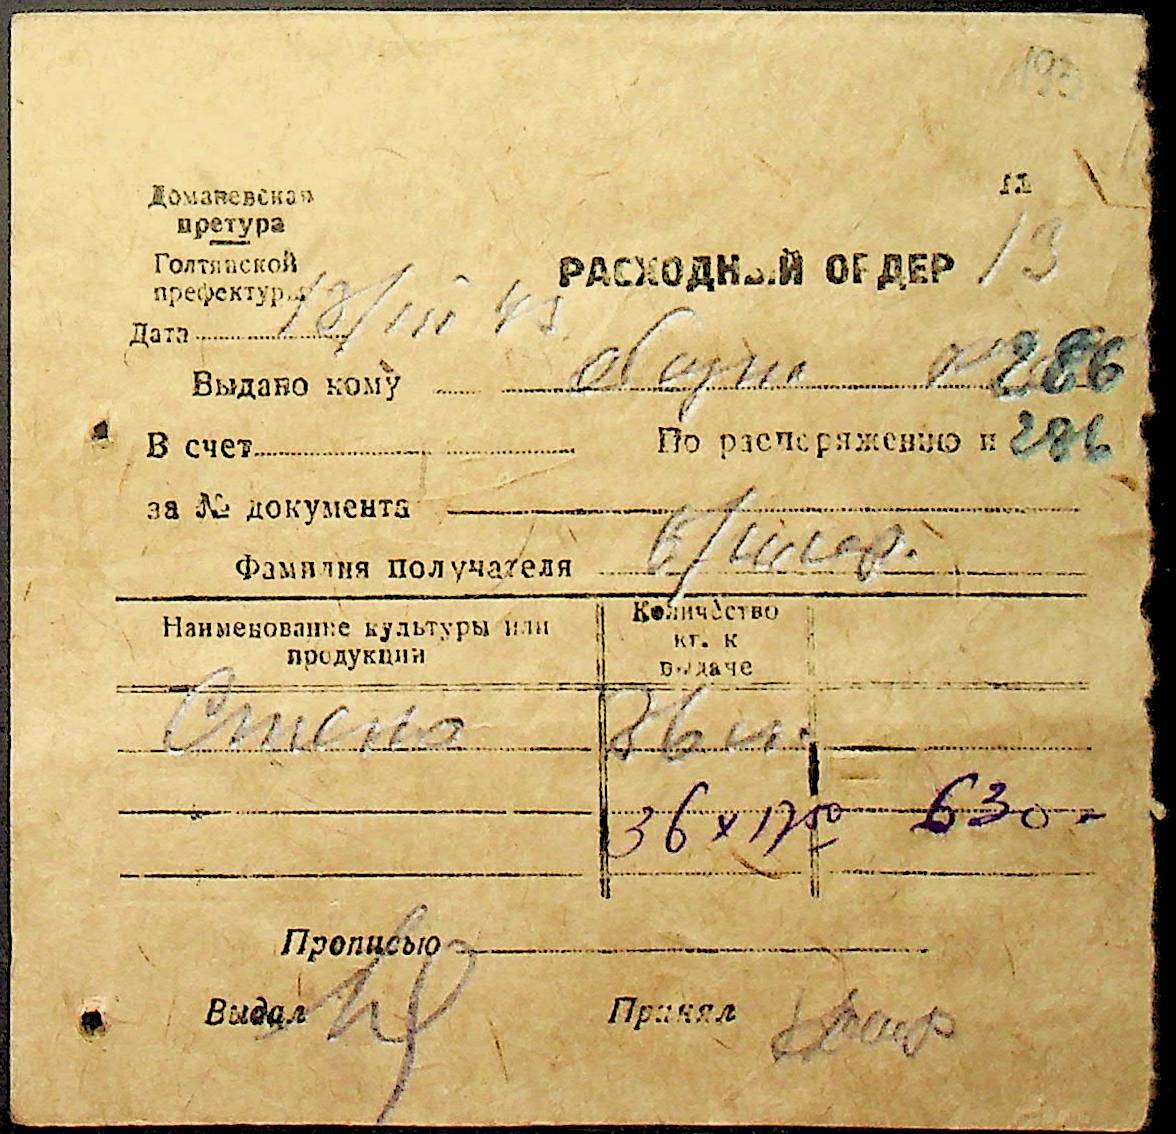 193
Доманевская
претура
Голтянской
префектуры
РАСХОДНЫЙ ОРДЕР 13
Дата 13/III 43
Выдано кому 286
В счет По распоряжению № 286
за № документа
Фамилия получателя
Наименование культуры или продукции Количество кг. к выдаче
Стекло 36
36 х 17 50 630-
Прописью
Выдал Принял